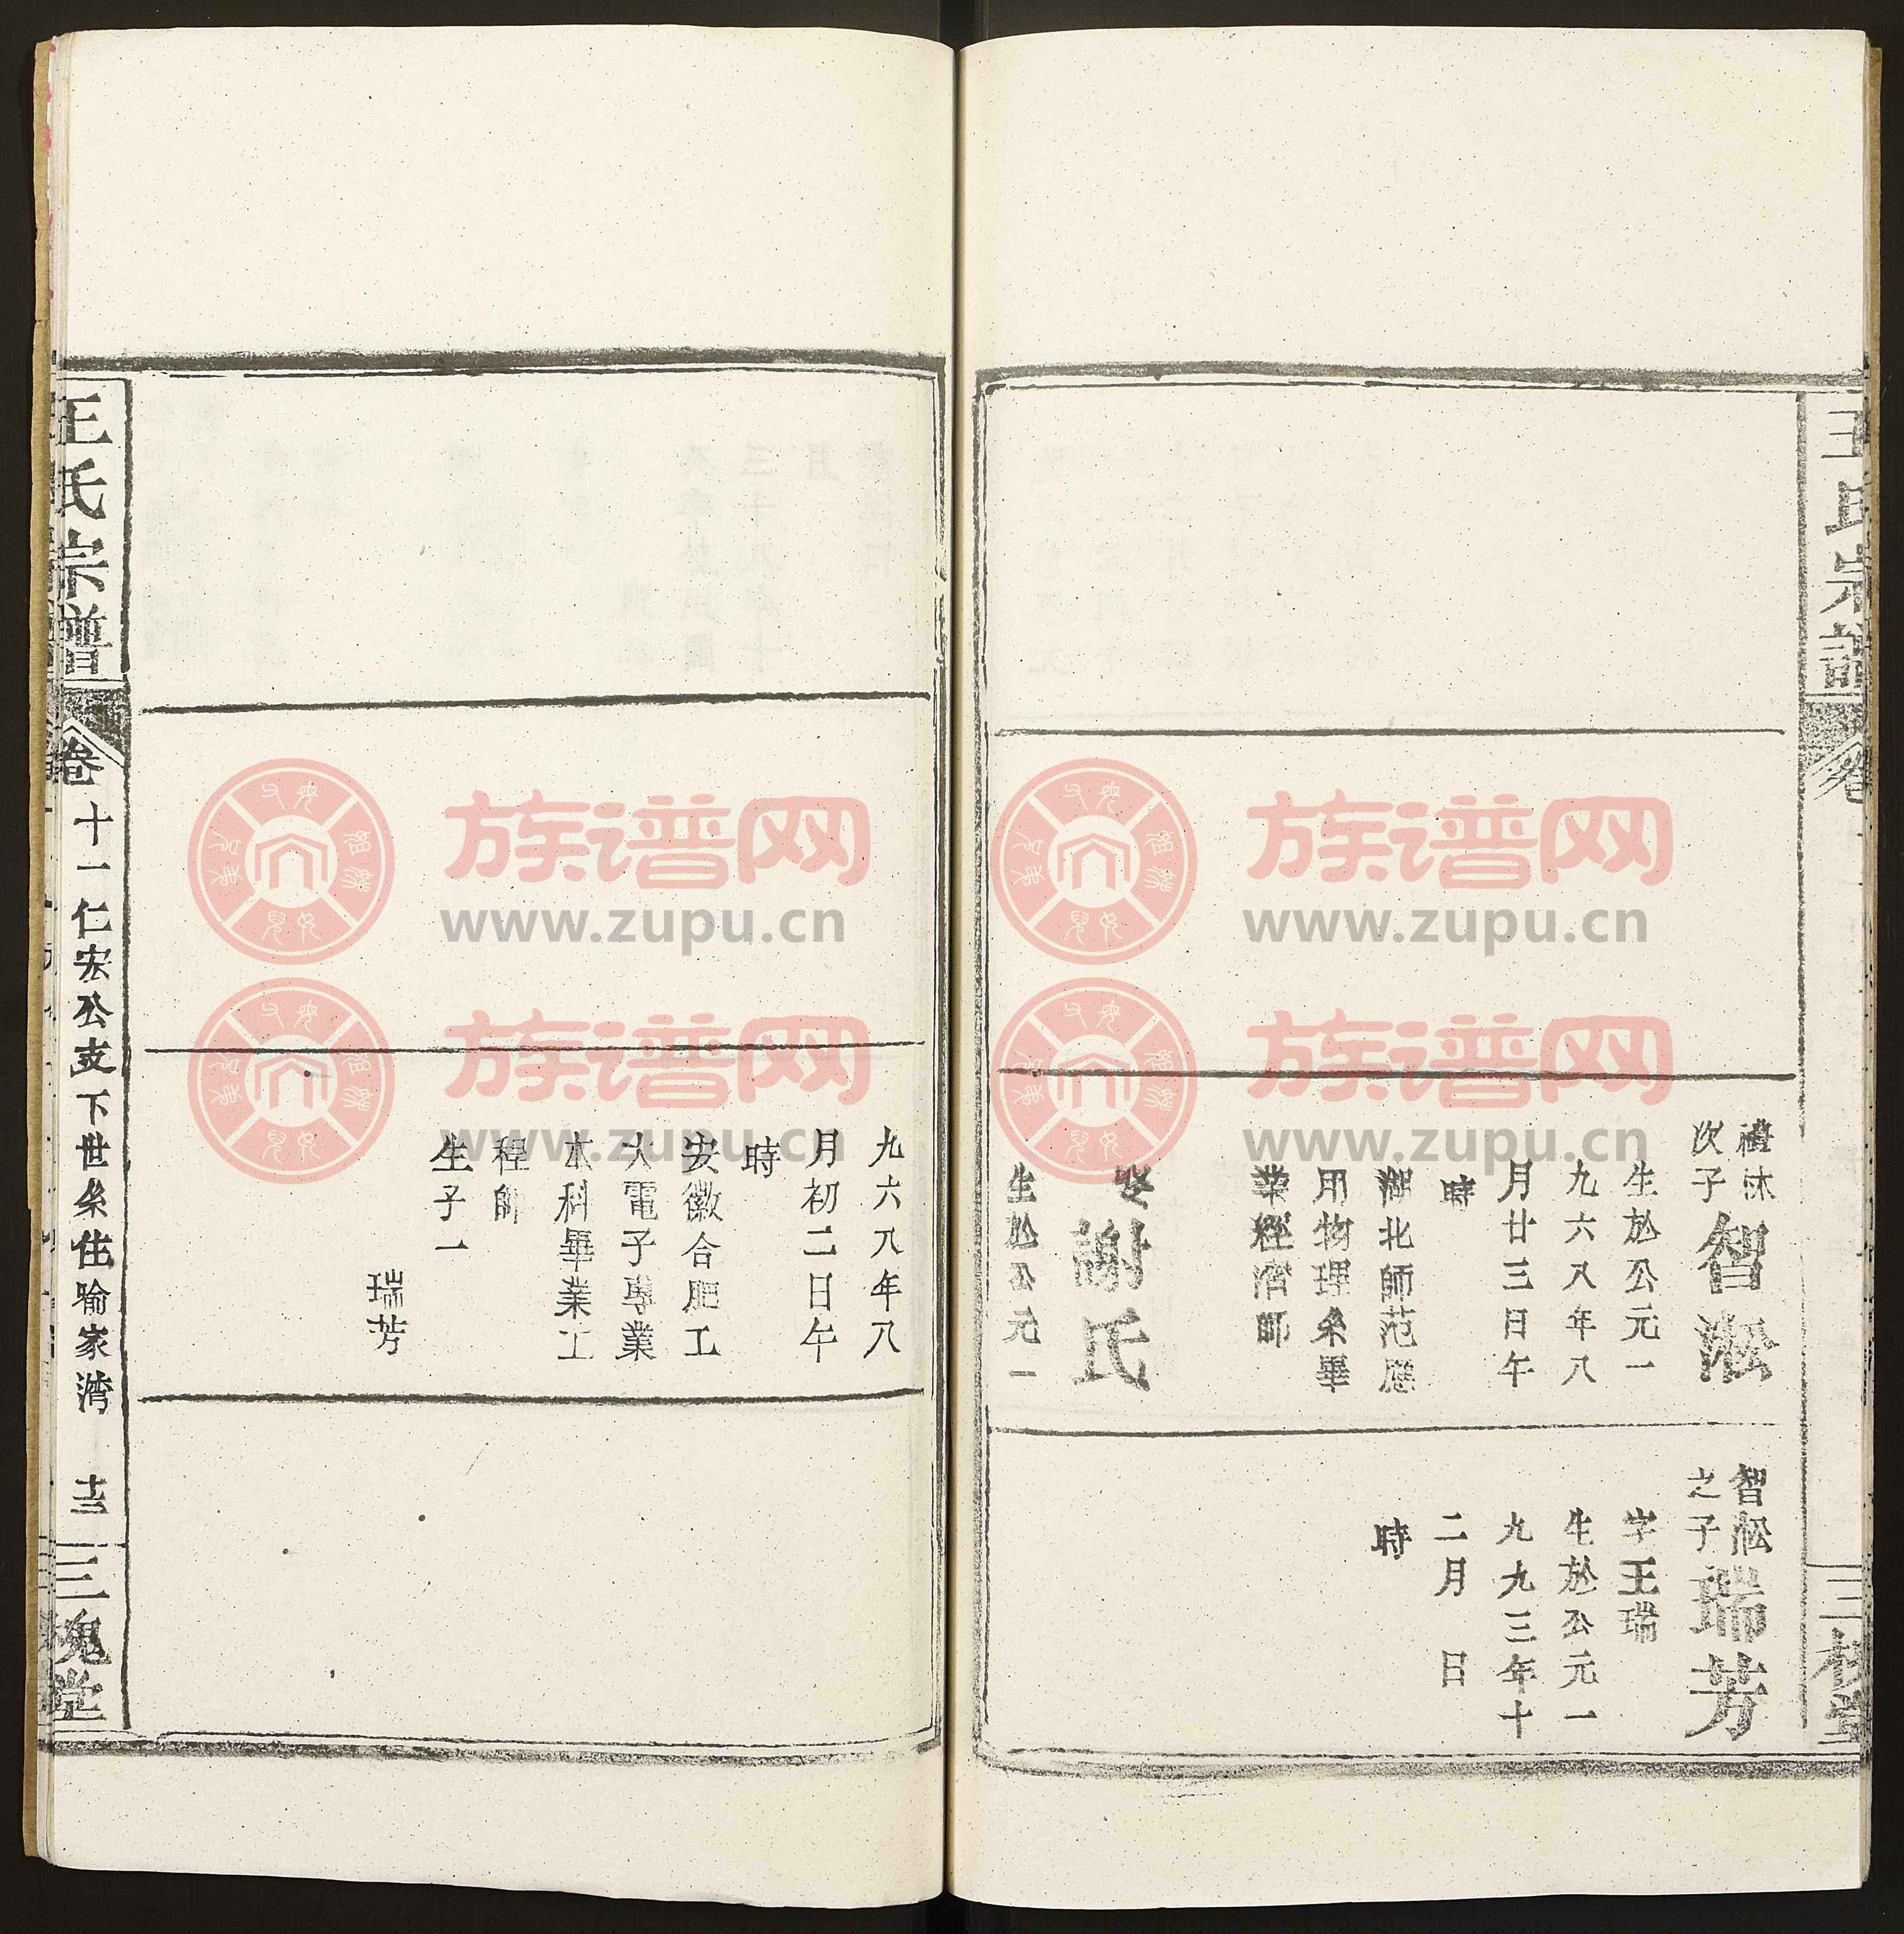 王氏宗譜
卷
三槐堂
禮沐
次子
智淞
生於公元一
九六八年八
月廿三日午
時
湖北師范應
用物理系畢
業經濟師
娶
謝氏
生於公元一
智淞
之子
瑞芳
字王瑞
生於公元一
九九三年十
二月 日
時
九六八年八
月初二日午
時
安徽合肥工
大電子專業
本科畢業工
程師
生子一
瑞芳
王氏宗譜
卷十一仁宏公支下世系住喻家湾
三槐堂
族谱网
www.zupu.cn
族谱网
www.zupu.cn
族谱网
www.zupu.cn
族谱网
www.zupu.cn